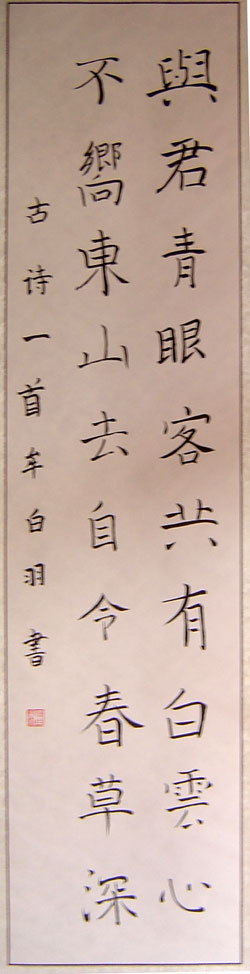 與君青眼客共有白雲心
不嚮東山去自令春草深
古诗一首牟白羽書